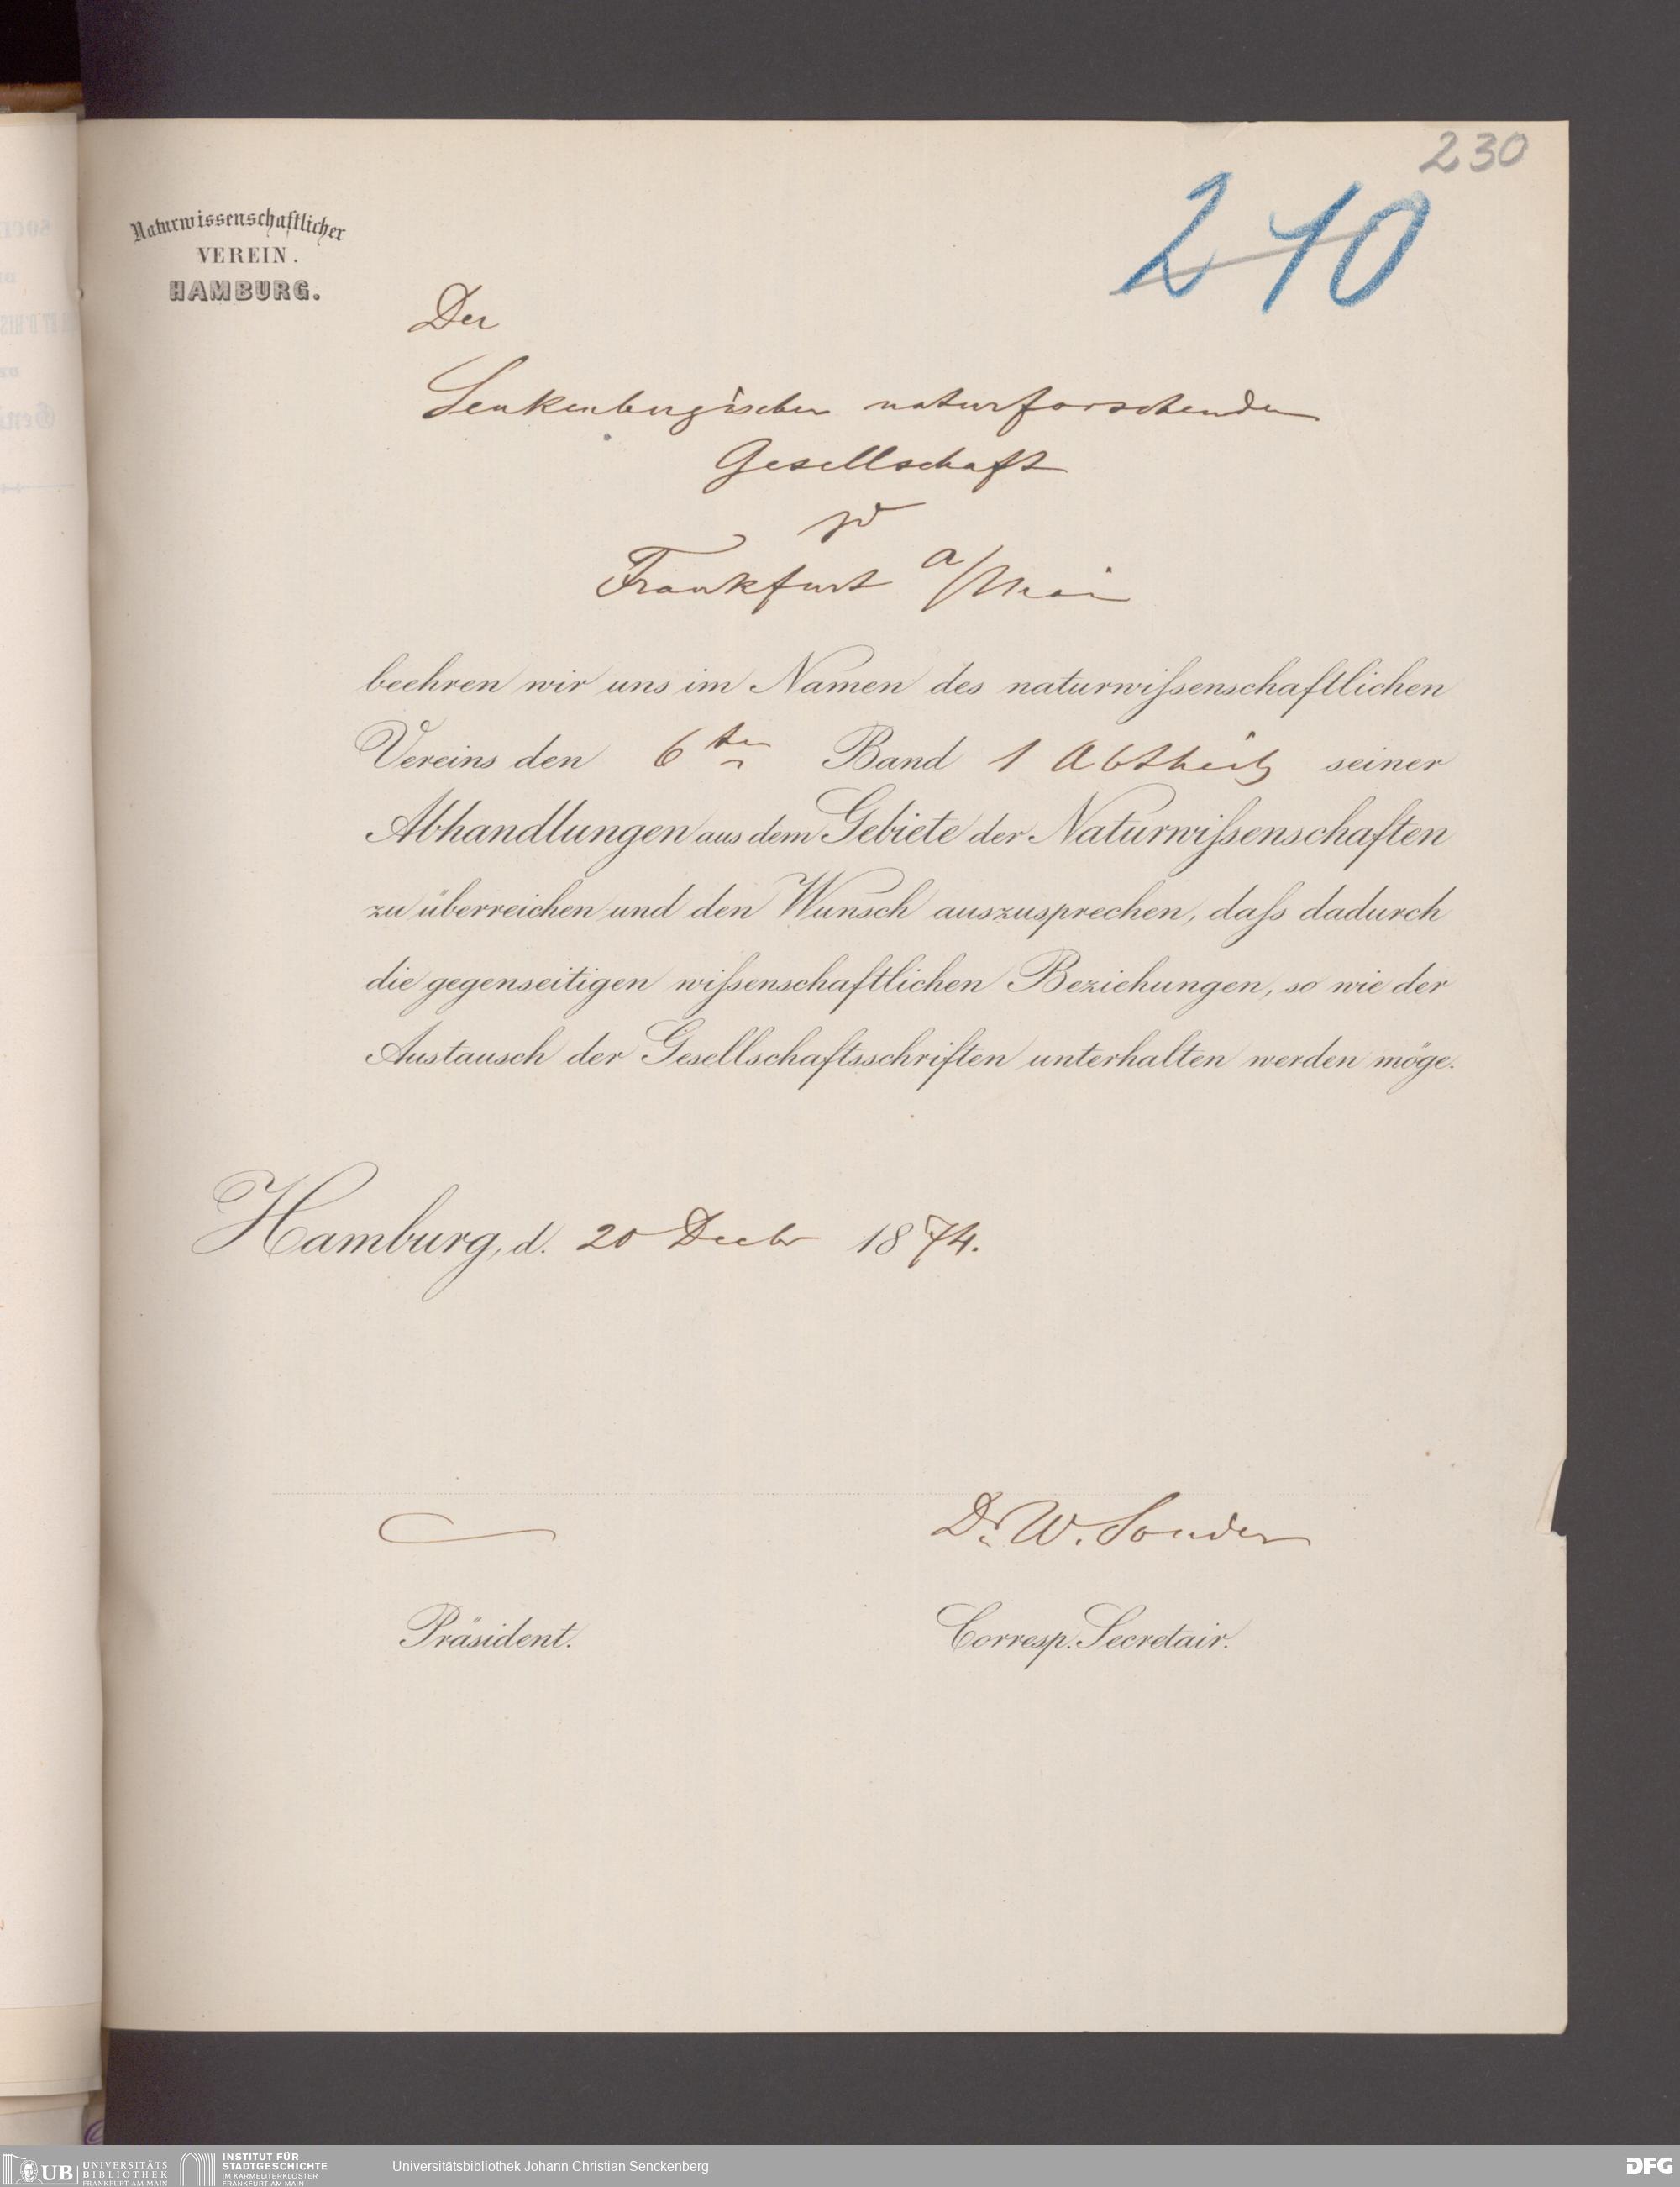 230
210
Naturwissenschaftlicher
VEREIN.
HAMBURG.
Der
Senkenbergischen naturforschenden
Gesellschaft
zu
Frankfurt a/Main
beehren wir uns im Namen des naturwiſsenschaftlichen
Vereins den 6ten Band 1 Abtheilg seiner
Abhandlungen aus dem Gebiete der Naturwiſsenschaften
zu überreichen und den Wunsch auszusprechen, daſs dadurch
die gegenseitigen wiſsenschaftlichen Beziehungen, so wie der
Austausch der Gesellschaftsschriften unterhalten werden möge.
Hamburg, d. 20 Decbr 1874.
Dr. W. Sonder
Präsident. Corresp. Secretair.
UB UNIVERSITÄTS BIBLIOTHEK FRANKFURT AM MAIN
INSTITUT FÜR STADTGESCHICHTE IM KARMELITERKLOSTER FRANKFURT AM MAIN
Universitätsbibliothek Johann Christian Senckenberg
DFG